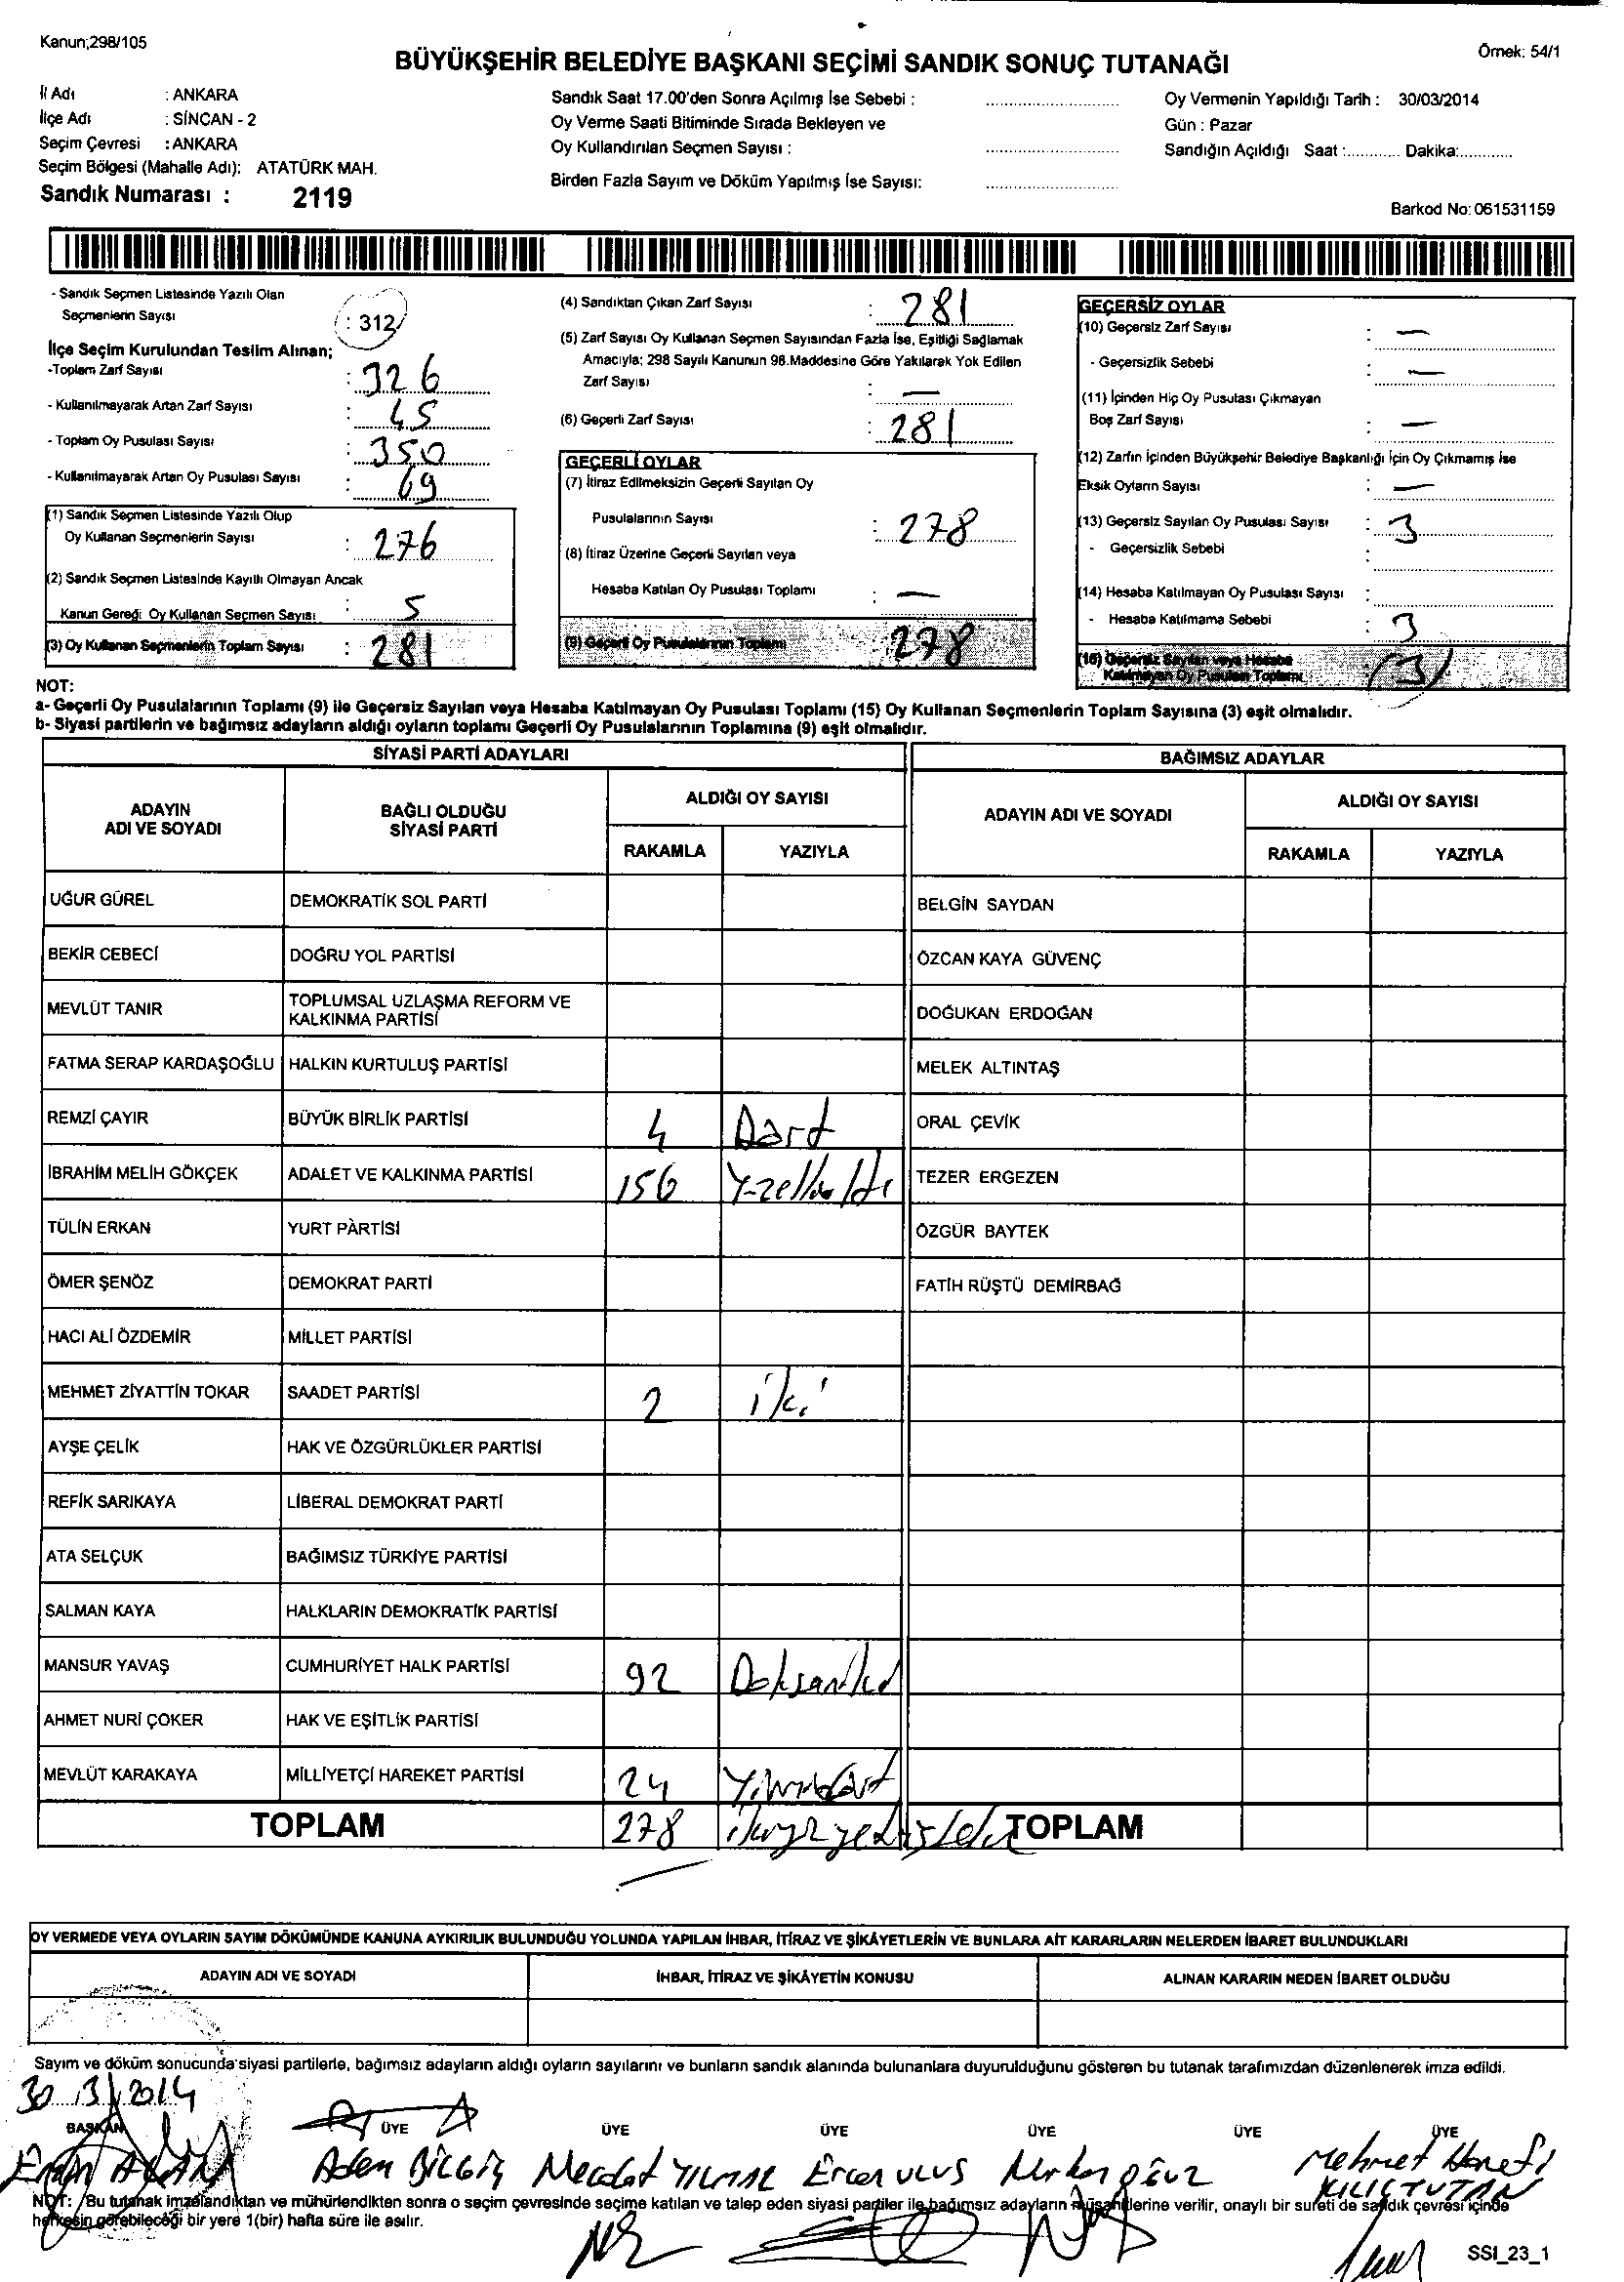 Kanun;298/105
Örnek: 54/1
BÜYÜKŞEHİR BELEDİYE BAŞKANI SEÇİMİ SANDIK SONUÇ TUTANAĞI
İl Adı : ANKARA
İlçe Adı : SİNCAN - 2
Seçim Çevresi : ANKARA
Seçim Bölgesi (Mahalle Adı): ATATÜRK MAH.
Sandık Numarası : 2119
Sandık Saat 17.00'den Sonra Açılmış İse Sebebi :
Oy Verme Saati Bitiminde Sırada Bekleyen ve
Oy Kullandırılan Seçmen Sayısı :
Birden Fazla Sayım ve Döküm Yapılmış İse Sayısı:
Oy Vermenin Yapıldığı Tarih : 30/03/2014
Gün : Pazar
Sandığın Açıldığı Saat :............ Dakika:............
Barkod No: 061531159
- Sandık Seçmen Listesinde Yazılı Olan
Seçmenlerin Sayısı : 312
İlçe Seçim Kurulundan Teslim Alınan;
-Toplam Zarf Sayısı : 326
- Kullanılmayarak Artan Zarf Sayısı : 45
- Toplam Oy Pusulası Sayısı : 350
- Kullanılmayarak Artan Oy Pusulası Sayısı : 69
(1) Sandık Seçmen Listesinde Yazılı Olup
Oy Kullanan Seçmenlerin Sayısı : 276
(2) Sandık Seçmen Listesinde Kayıtlı Olmayan Ancak
Kanun Gereği Oy Kullanan Seçmen Sayısı : 5
(3) Oy Kullanan Seçmenlerin Toplam Sayısı : 281
(4) Sandıktan Çıkan Zarf Sayısı : 281
(5) Zarf Sayısı Oy Kullanan Seçmen Sayısından Fazla İse, Eşitliği Sağlamak
Amacıyla; 298 Sayılı Kanunun 98.Maddesine Göre Yakılarak Yok Edilen
Zarf Sayısı : —
(6) Geçerli Zarf Sayısı : 281
GEÇERLİ OYLAR
(7) İtiraz Edilmeksizin Geçerli Sayılan Oy
Pusulalarının Sayısı : 278
(8) İtiraz Üzerine Geçerli Sayılan veya
Hesaba Katılan Oy Pusulası Toplamı : —
(9) Geçerli Oy Pusulalarının Toplamı 278
GEÇERSİZ OYLAR
(10) Geçersiz Zarf Sayısı : —
- Geçersizlik Sebebi : —
(11) İçinden Hiç Oy Pusulası Çıkmayan
Boş Zarf Sayısı : —
(12) Zarfın İçinden Büyükşehir Belediye Başkanlığı İçin Oy Çıkmamış İse
Eksik Oyların Sayısı : —
(13) Geçersiz Sayılan Oy Pusulası Sayısı : 3
- Geçersizlik Sebebi :
(14) Hesaba Katılmayan Oy Pusulası Sayısı :
- Hesaba Katılmama Sebebi : 3
(15) Geçersiz Sayılan veya Hesaba
Katılmayan Oy Pusulası Toplamı 3
NOT:
a- Geçerli Oy Pusulalarının Toplamı (9) ile Geçersiz Sayılan veya Hesaba Katılmayan Oy Pusulası Toplamı (15) Oy Kullanan Seçmenlerin Toplam Sayısına (3) eşit olmalıdır.
b- Siyasi partilerin ve bağımsız adayların aldığı oyların toplamı Geçerli Oy Pusulalarının Toplamına (9) eşit olmalıdır.
SİYASİ PARTİ ADAYLARI
ADAYIN ADI VE SOYADI
BAĞLI OLDUĞU SİYASİ PARTİ
ALDIĞI OY SAYISI
RAKAMLA YAZIYLA
UĞUR GÜREL DEMOKRATİK SOL PARTİ
BEKİR CEBECİ DOĞRU YOL PARTİSİ
MEVLÜT TANIR TOPLUMSAL UZLAŞMA REFORM VE KALKINMA PARTİSİ
FATMA SERAP KARDAŞOĞLU HALKIN KURTULUŞ PARTİSİ
REMZİ ÇAYIR BÜYÜK BİRLİK PARTİSİ 4 Dört
İBRAHİM MELİH GÖKÇEK ADALET VE KALKINMA PARTİSİ 156 Yüzellialtı
TÜLİN ERKAN YURT PARTİSİ
ÖMER ŞENÖZ DEMOKRAT PARTİ
HACI ALİ ÖZDEMİR MİLLET PARTİSİ
MEHMET ZİYATTİN TOKAR SAADET PARTİSİ 2 iki
AYŞE ÇELİK HAK VE ÖZGÜRLÜKLER PARTİSİ
REFİK SARIKAYA LİBERAL DEMOKRAT PARTİ
ATA SELÇUK BAĞIMSIZ TÜRKİYE PARTİSİ
SALMAN KAYA HALKLARIN DEMOKRATİK PARTİSİ
MANSUR YAVAŞ CUMHURİYET HALK PARTİSİ 92 Doksaniki
AHMET NURİ ÇOKER HAK VE EŞİTLİK PARTİSİ
MEVLÜT KARAKAYA MİLLİYETÇİ HAREKET PARTİSİ 24 Yirmidört
TOPLAM 278 ikiyüzyetmişsekiz
BAĞIMSIZ ADAYLAR
ADAYIN ADI VE SOYADI
ALDIĞI OY SAYISI
RAKAMLA YAZIYLA
BELGİN SAYDAN
ÖZCAN KAYA GÜVENÇ
DOĞUKAN ERDOĞAN
MELEK ALTINTAŞ
ORAL ÇEVİK
TEZER ERGEZEN
ÖZGÜR BAYTEK
FATİH RÜŞTÜ DEMİRBAĞ
TOPLAM
OY VERMEDE VEYA OYLARIN SAYIM DÖKÜMÜNDE KANUNA AYKIRILIK BULUNDUĞU YOLUNDA YAPILAN İHBAR, İTİRAZ VE ŞİKÂYETLERİN VE BUNLARA AİT KARARLARIN NELERDEN İBARET BULUNDUKLARI
ADAYIN ADI VE SOYADI
İHBAR, İTİRAZ VE ŞİKÂYETİN KONUSU
ALINAN KARARIN NEDEN İBARET OLDUĞU
Sayım ve döküm sonucunda siyasi partilerle, bağımsız adayların aldığı oyların sayılarını ve bunların sandık alanında bulunanlara duyurulduğunu gösteren bu tutanak tarafımızdan düzenlenerek imza edildi.
30 /3/2014
BAŞKAN ÜYE ÜYE ÜYE ÜYE ÜYE ÜYE
Adem BİLGİÇ Necdet YILMAZ Ercan ULUS OĞUZ Mehmet Hanefi
KILIÇTUTAN
NOT: Bu tutanak imzalandıktan ve mühürlendikten sonra o seçim çevresinde seçime katılan ve talep eden siyasi partiler ile bağımsız adayların müşahitlerine verilir, onaylı bir sureti de sandık çevresi içinde
herkesin görebileceği bir yere 1(bir) hafta süre ile asılır.
SSI_23_1